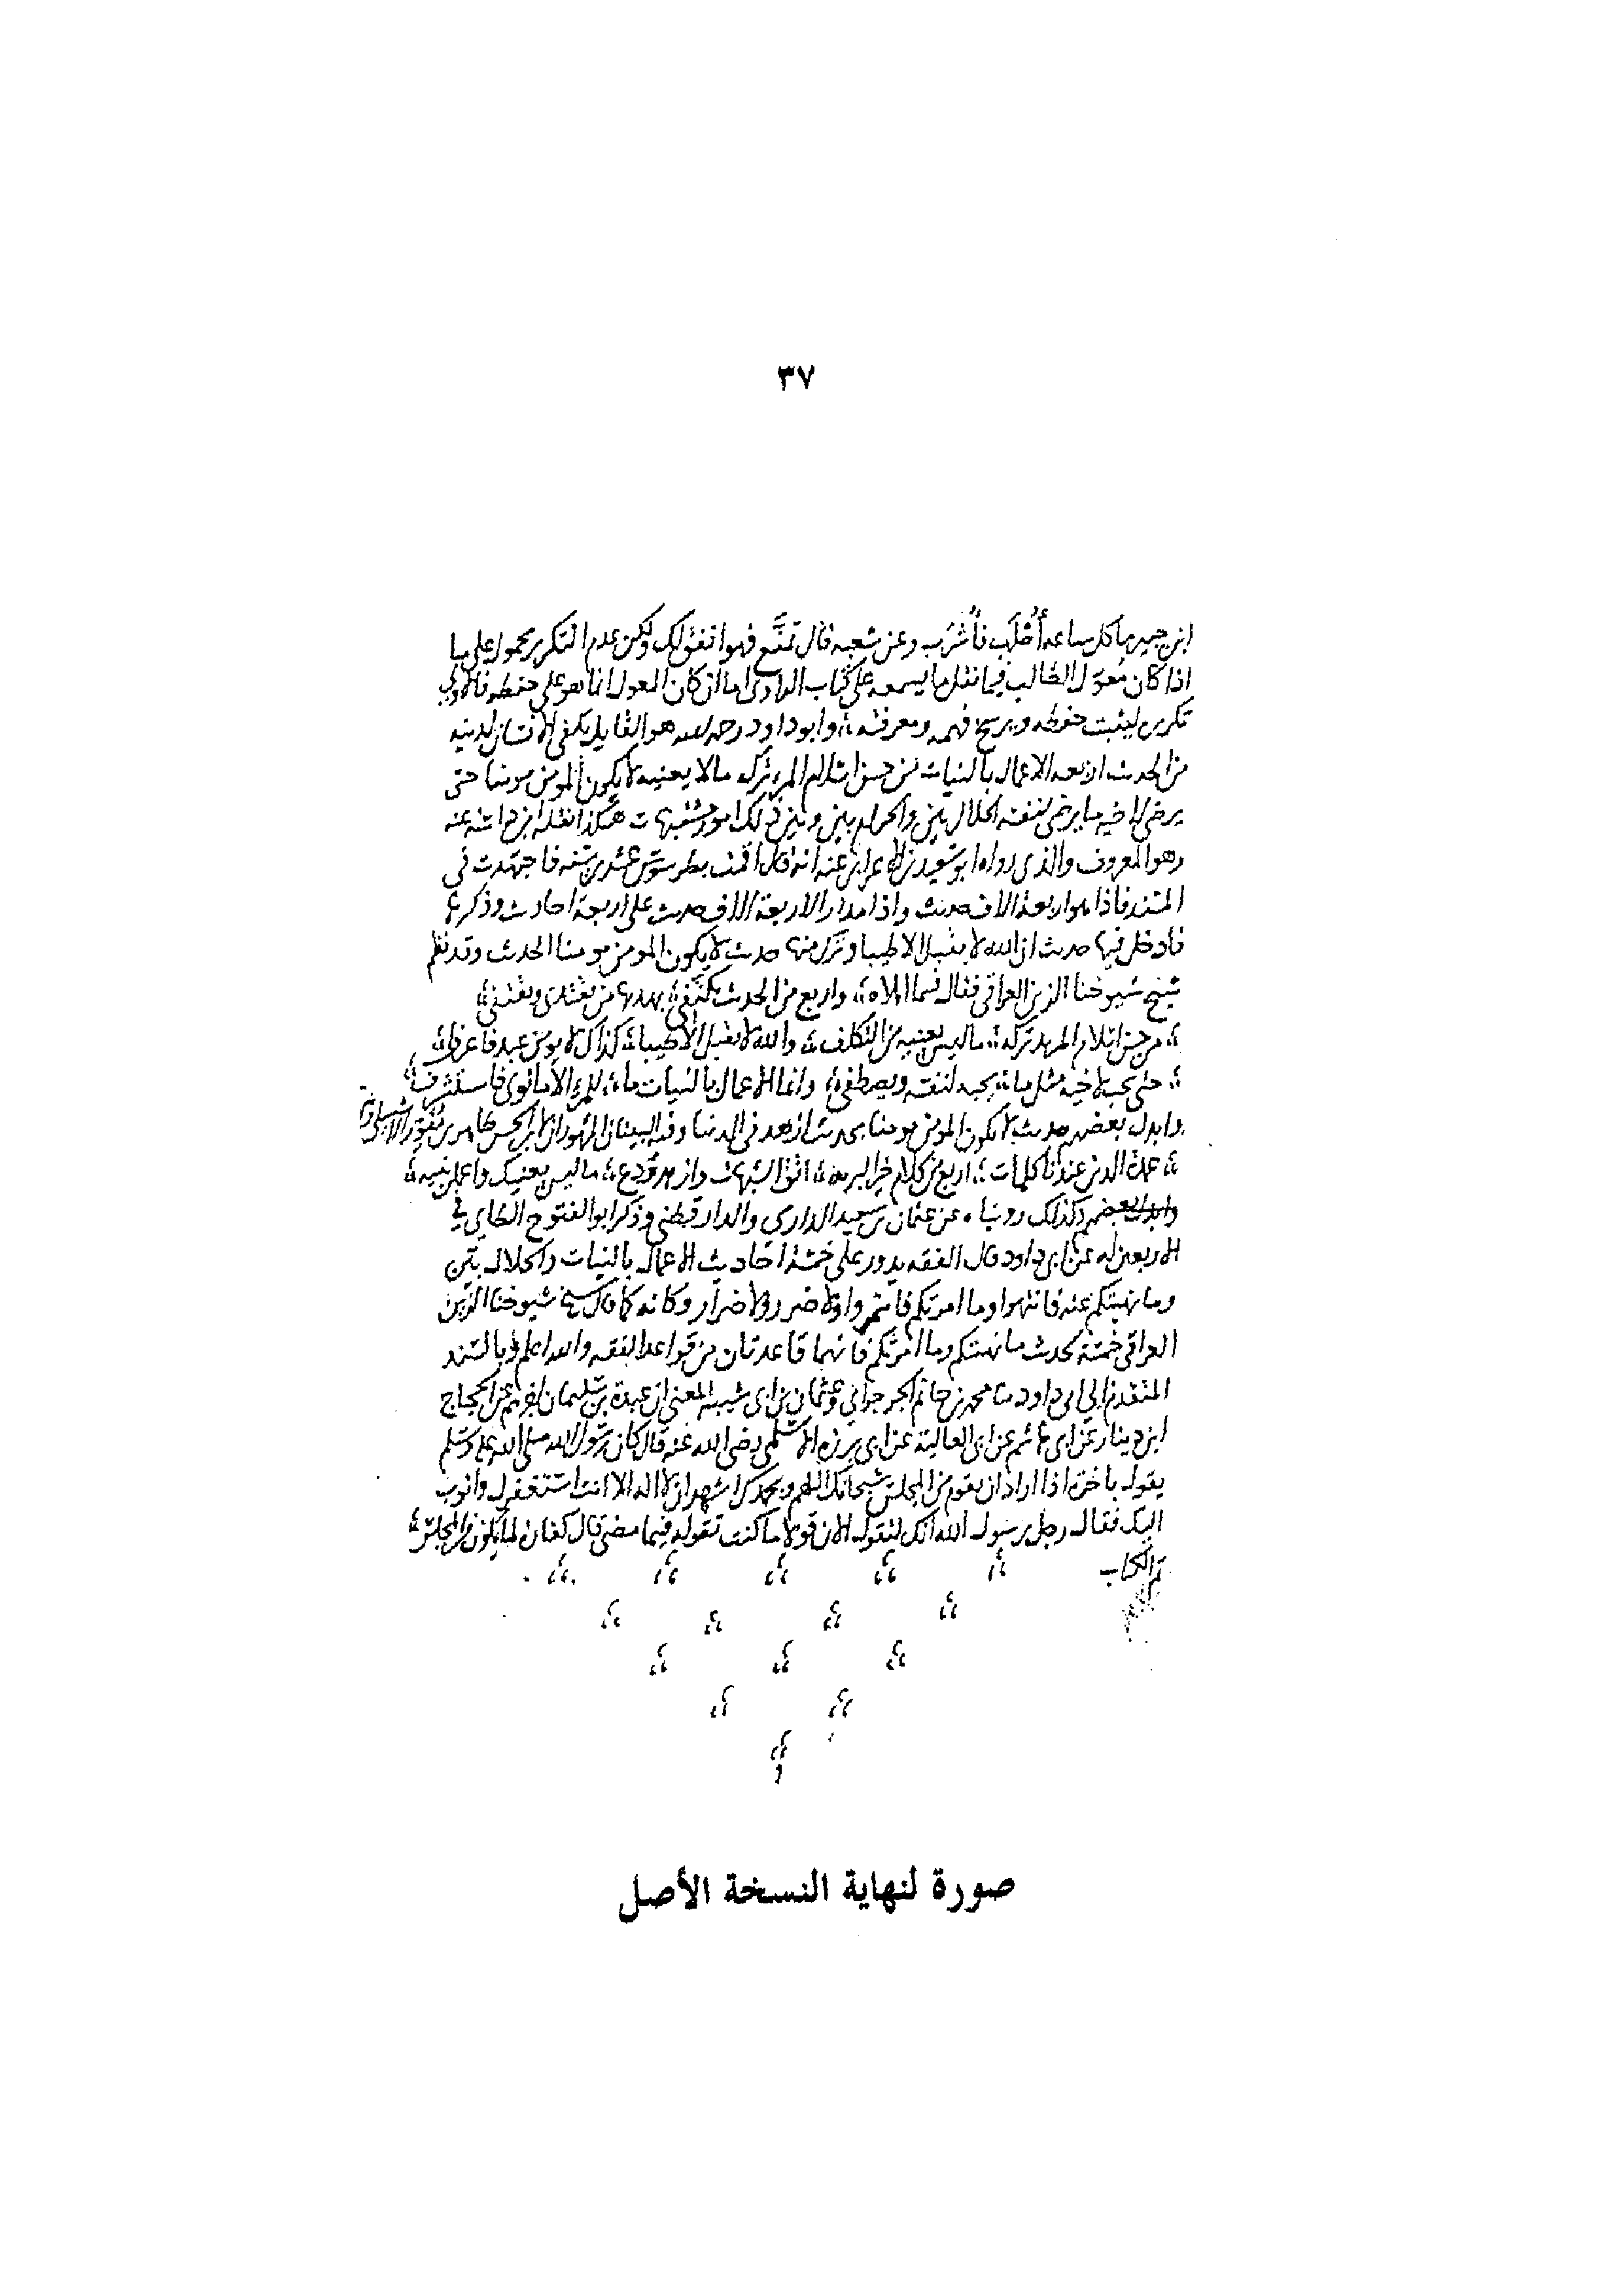 ٣٧
ابن جبير ما كل ساعة أحلب فأشرب وعن شعبة قال تمنع فهو أنفق لك ولكن عدم التكرير محمول على ما
اذا كان معول الطالب فيما نقل ما يسمعه على كتاب الراوى اما ان كان المعول انما هو على حفظه فالاولى
تكريره ليثبت حفظه ويرسخ فهمه ومعرفته وابو داود رحمه الله هو القايل يكفى الانسان لدينه
من الحديث اربعة الاعمال بالنيات من حسن اسلام المرء تركه مالا يعنيه لا يكون المومن مومنا حتى
يرضى لاخيه ما يرضى لنفسه الحلال بين والحرام بين وبين ذلك امور مشتبهات هكذا نقله ابن داسة عنه
وهو المعروف والذى رواه ابو سعيد بن الاعرابى عنه انه قال اقمت بطرسوس عشرين سنة فاجتهدت فى
المسند فاذا هو اربعة الاف حديث واذا مدار الاربعة الاف حديث على اربعة احاديث وذكرها
فادخل فيها حديث ان الله لا يقبل الا طيبا وترك منها حديث لا يكون المومن مومنا الحديث وقد نظم
شيخ شيوخنا الزين العراقى فقال فيما املاه واربع من الحديث يكتفى بهديها من يقتدى ويقتفى
من حسن اسلام المرء تركه ما ليس يعنيه من التكلف والله لا يقبل الا طيبا كذاك لا يومن عبد فاعرف
حتى يحب لاخيه مثل ما يحبه لنفسه ويصطفى وانما الاعمال بالنيات ما للمرء الا ما نوى فاستشرف
وابدل بعضهم حديث لا يكون المومن مومنا بحديث ازهد فى الدنيا وفيه البيتان المشهوران لابى الحسن طاهر بن مفوز الاشبيلى
عمدة الدين عندنا كلمات اربع من كلام خير البرية اتق الشبهات وازهد ودع ما ليس يعنيك واعملن بنية
وكذلك روينا عن عثمان بن سعيد الدارمى والدارقطنى وذكر ابو الفتوح الطاى فى
الاربعين له عن ابى داود قال الفقه يدور على خمسة احاديث الاعمال بالنيات والحلال بين
وما نهيتكم عنه فانتهوا وما امرتكم فاتمروا ولا ضرر ولا ضرار وكانه كما قال شيخ شيوخنا الزين
العراقى خمسة لحديث ما نهيتكم وما امرتكم فانهما قاعدتان من قواعد الفقه والله اعلم وبالسند
المتقدم الى ابى داود ثنا محمد بن حاتم الجرجرايى وعثمان بن ابى شيبة المعنى ان عبدة بن سليمان اخبرهم عن الحجاج
ابن دينار عن ابى هاشم عن ابى العالية عن ابى برزة الاسلمى رضى الله عنه قال كان رسول الله صلى الله عليه وسلم
يقول باخرة اذا اراد ان يقوم من المجلس سبحانك اللهم وبحمدك اشهد ان لا اله الا انت استغفرك واتوب
اليك فقال رجل يرسول الله انك لتقول الان قولا ما كنت تقوله فيما مضى قال كفارة لما يكون فى المجلس
تم الكتاب
صورة لنهاية النسخة الأصل